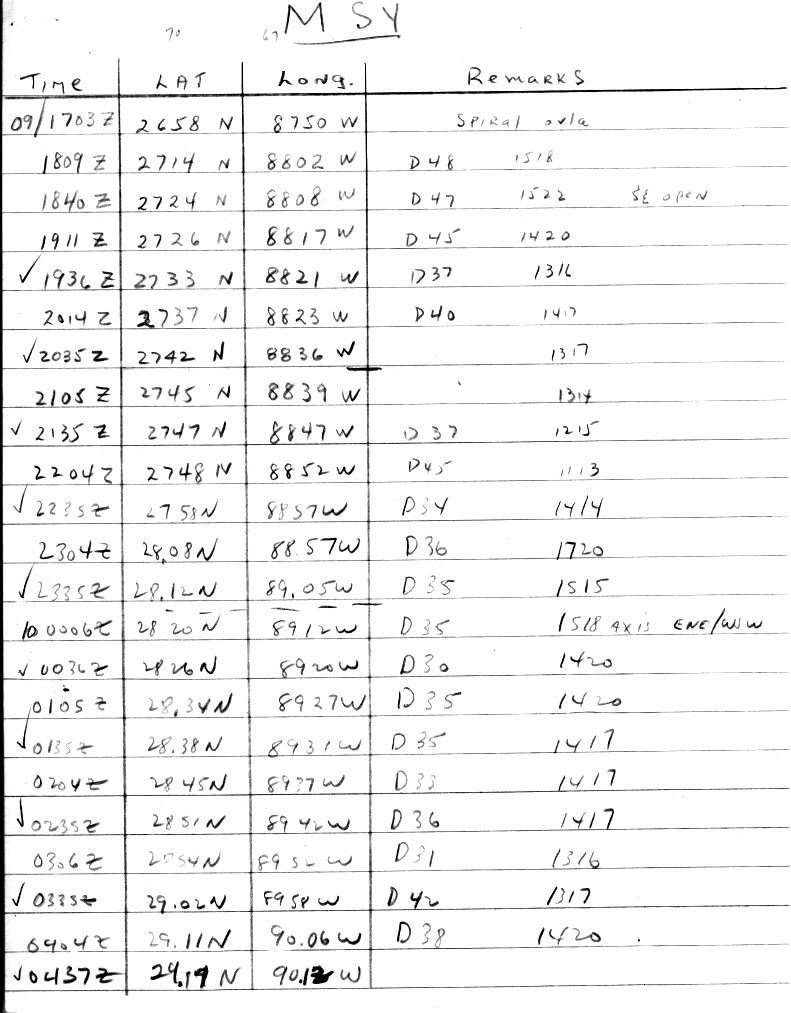 70 67 MSY
Time LAT Long. Remarks
09/1703Z 2658 N 8750 W Spiral ovla
1809 Z 2714 N 8802 W D48 1518
1840 Z 2724 N 8808 W D47 1522 SE open
1911 Z 2726 N 8817 W D45 1420
✓1936 Z 2733 N 8821 W D37 1316
2014 Z 2737 N 8823 W D40 1417
✓2035 Z 2742 N 8836 W 1317
2105 Z 2745 N 8839 W 1314
✓ 2135 Z 2747 N 8847 W D 37 1215
2204Z 2748 N 8852 W D45 1113
✓2235Z 2758N 8857W D34 1414
2304Z 28.08N 88.57W D36 1720
✓2335Z 28.12N 89.05W D 35 1515
10 0006Z 28 20 N 8912W D 35 1518 AXIS ENE/WSW
✓ 0036Z 2826N 8920W D30 1420
0105 Z 28.34N 8927W D 35 1420
✓0135Z 28.38N 8931W D 35 1417
0204Z 2845N 8937W D33 1417
✓0235Z 2851N 8942W D 36 1417
0306Z 2854N 8952 W D31 1316
✓ 0335Z 29.02N 8958 W D 42 1317
0404Z 29.11N 90.06W D 38 1420 .
✓0437Z 29.19 N 90.12 W